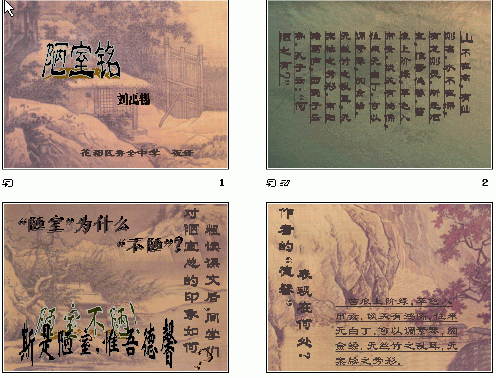 陋室铭
刘禹锡
花都区秀全中学
山不在高,有仙
则名。水不在深,
有龙则灵。斯是陋
室,惟吾德馨。苔痕
上阶绿,草色入
帘青。谈笑有鸿
儒,往来无白丁。
可以调素琴,阅
金经。无丝竹之
乱耳,无案牍之
劳形。南阳诸葛
庐,西蜀子云
亭。孔子云:“何
陋之有?”
1
2
“陋室”为什么
“不陋”?
粗读课文后,同学们
对陋室总的印象如何
陋室不陋!
斯是陋室,惟吾德馨
作者的“德馨”
表现在何处?
苔痕上阶绿,草色入
帘青。谈笑有鸿儒,往来
无白丁。可以调素琴,阅
金经。无丝竹之乱耳,无
案牍之劳形。